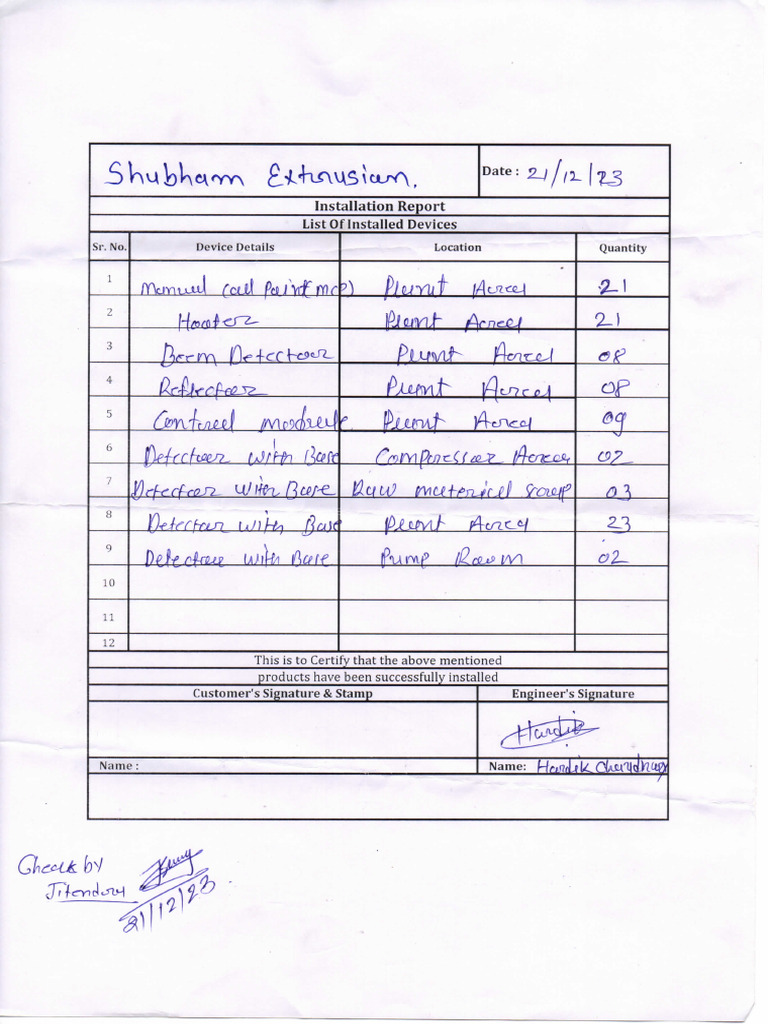 Shubham Extrusion. Date : 21/12/23
Installation Report
List Of Installed Devices
Sr. No. Device Details Location Quantity
1 Manual Call Point (MCP) Plant Area 21
2 Hooter Plant Area 21
3 Beam Detector Plant Area 08
4 Reflector Plant Area 08
5 Control module Plant Area 09
6 Detector with Base Compressor Area 02
7 Detector with Base Raw material scrap 03
8 Detector with Base Plant Area 23
9 Detector with Base Pump Room 02
10
11
12
This is to Certify that the above mentioned
products have been successfully installed
Customer's Signature & Stamp Engineer's Signature
Hardik
Name : Name: Hardik Chaudhary
Check by
Jitendra
21/12/23